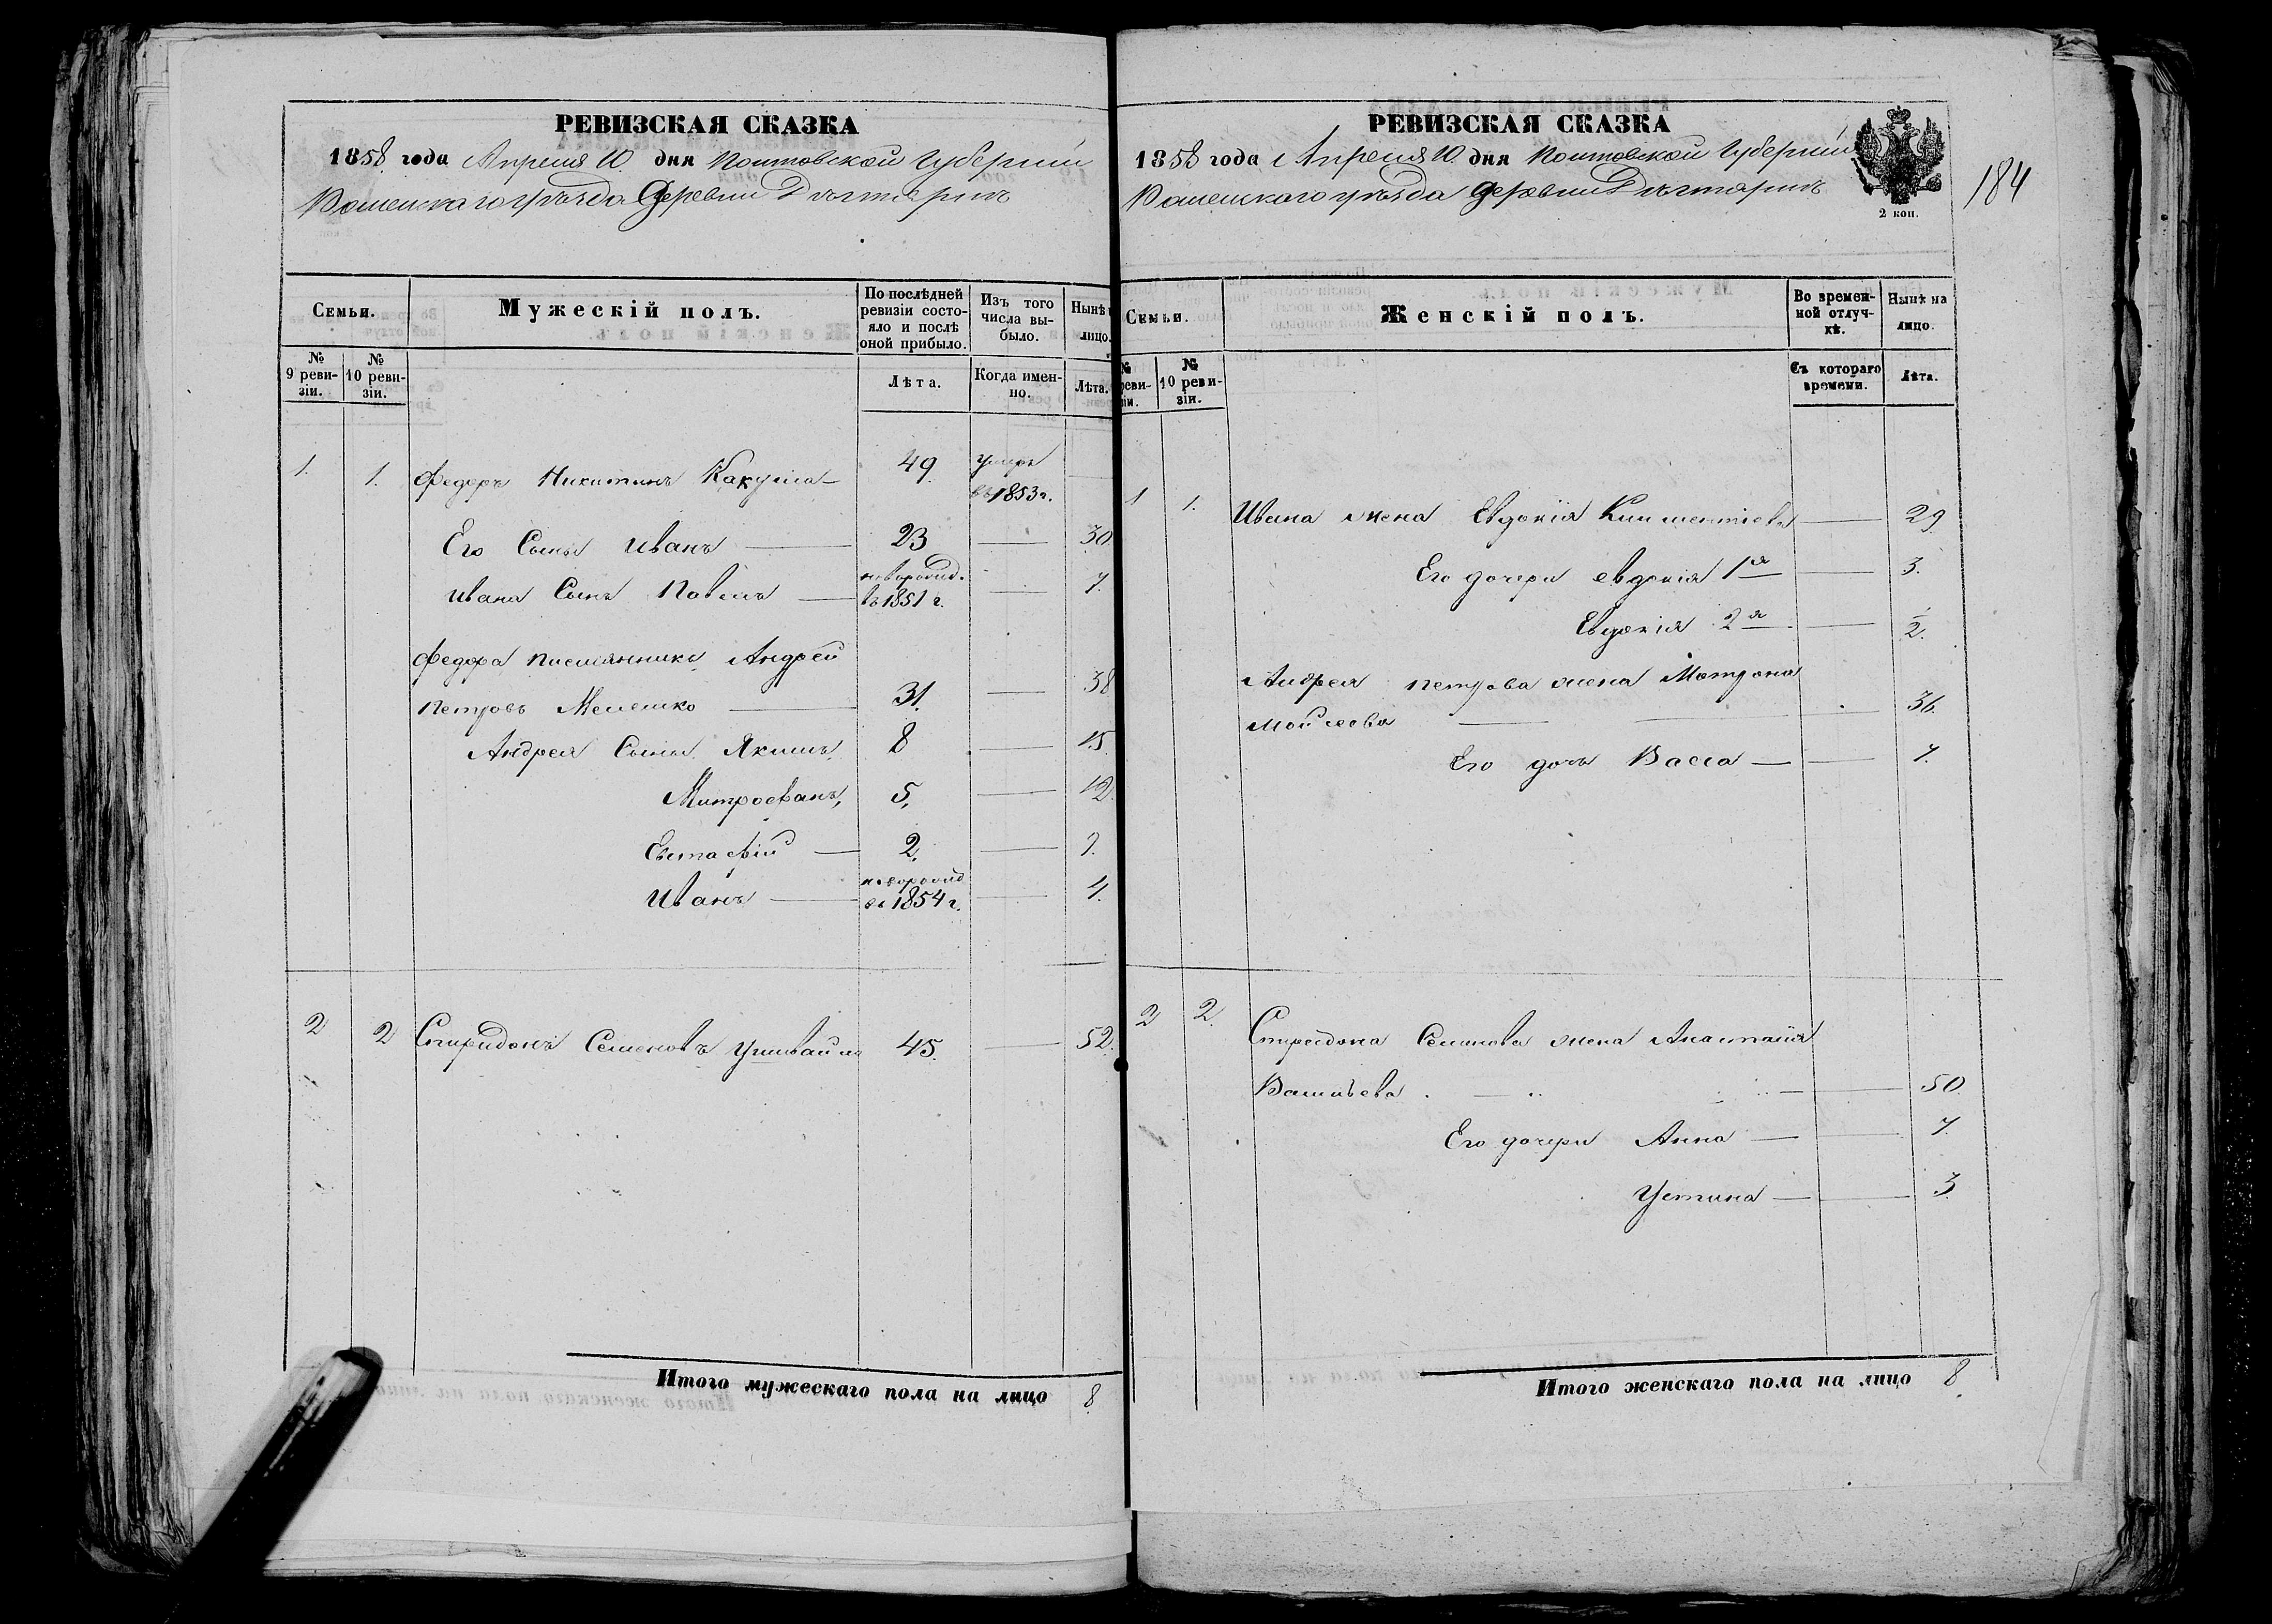 РЕВИЗСКАЯ СКАЗКА
1858 года Апреля 10 дня Полтавской Губерніи
Роменскаго уѣзда Деревни Дегтярки
Семьи.
Мужескій полъ.
По послѣдней ревизіи состояло и послѣ оной прибыло.
Изъ того числа выбыло.
Нынѣ лицо.
№ 9 ревизіи.
№ 10 ревизіи.
Лѣта.
Когда именно.
Лѣта.
1. 1. Федоръ Никитинъ Какуша 49. умеръ въ 1853 г.
Его Сынъ Иванъ — 23 — 30
Ивана Сынъ Павелъ — новорожд. въ 1851 г. — 7.
Федора племянникъ Андрей
Петровъ Мелешко — 31. — 38
Андрея Сыны Якимъ, 8 — 15.
Митрофанъ, 5, — 12.
Евстафій — 2, — 9.
Иванъ — новорожд въ 1854 г. — 4.
2 2 Спиридонъ Семеновъ 45. — 52.
Итого мужескаго пола на лицо 8
РЕВИЗСКАЯ СКАЗКА
1858 года Апреля 10 дня Полтавской Губерніи
Роменскаго уѣзда Деревни Дегтярки
2 коп.
184
Семьи.
Женскій полъ.
Во временной отлучкѣ.
Нынѣ на лицо.
№ ревизіи.
№ 10 ревизіи.
Съ котораго времени.
Лѣта.
1 1. Ивана жена Евдокія Климентіева — 29
Его дочери Евдокія 1я — 3.
Евдокія 2я — 1/2.
Андрея Петрова жена Матрона
Мойсеева — 36.
Его дочь Васса — 7.
2 2. Спиридона Семенова жена Анастасія
Васильева — 50.
Его дочери Анна — 7.
Устина — 3.
Итого женскаго пола на лицо 8.